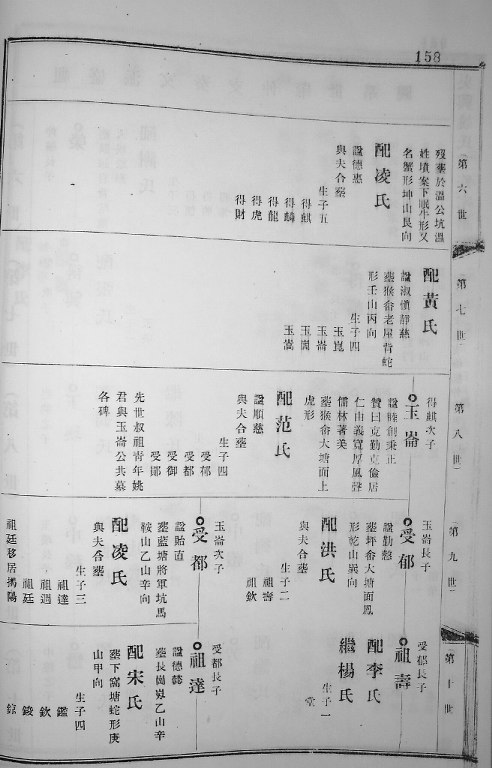 158
第六世
歿葬於溫公坑溫
姓墳案下眠牛形又
名蟹形坤山艮向
配凌氏
諡德惠
與夫合塟
生子五
得麒
得麟
得龍
得虎
得財
第七世
配黃氏
諡淑慎靜慈
塟猴畲老屋背蛇
形壬山丙向
生子四
玉崑
玉崙
玉嵩
第八世
得麒次子
玉崙
諡睦創秉正
贊曰克勤克儉居
仁由義寬厚風聲
儒林著美
塟猴畲大塘面上
虎形
配范氏
諡順慈
與夫合塟
生子四
受郁
受都
受御
受鄖
先世叔祖青年姚
君與玉崙公共墓
各碑
第九世
玉崙長子
受郁
諡勤慤
塟坪畲大塘面鳳
形乾山巽向
配洪氏
與夫合塟
生子二
祖壽
祖欽
玉崙次子
受都
諡貽直
塟藍塘將軍坑馬
鞍山乙山辛向
配凌氏
與夫合塟
生子三
祖達
祖週
祖廷
祖廷移居揭陽
第十世
受郁長子
祖壽
配李氏
繼楊氏
生子一
堂
受都長子
祖達
諡德懿
塟長崗㟧乙山辛
配宋氏
塟下窩塘蛇形庚
山甲向
生子四
鑑
欽
錂